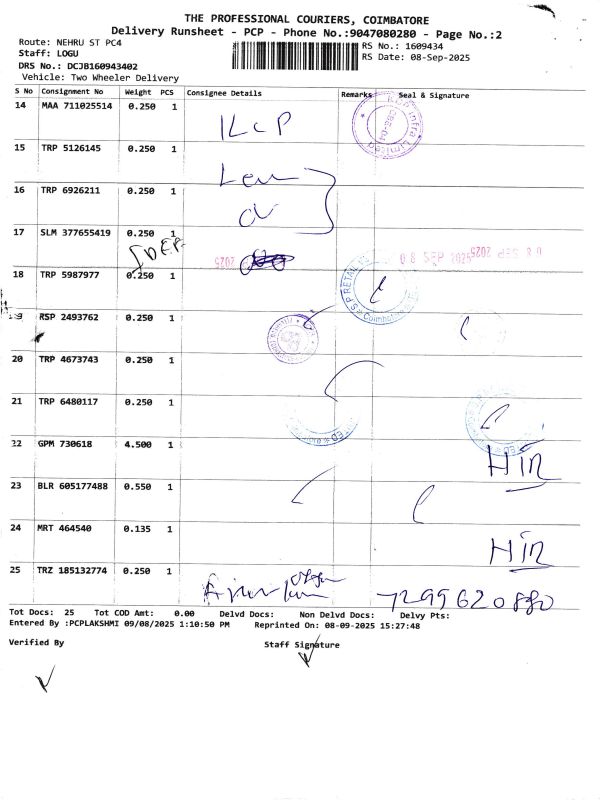 THE PROFESSIONAL COURIERS, COIMBATORE
Delivery Runsheet - PCP - Phone No.:9047080280 - Page No.:2
Route: NEHRU ST PC4
Staff: LOGU
DRS No.: DCJB160943402
Vehicle: Two Wheeler Delivery
RS No.: 1609434
RS Date: 08-Sep-2025
S No Consignment No Weight PCS Consignee Details Remarks Seal & Signature
14 MAA 711025514 0.250 1
15 TRP 5126145 0.250 1
16 TRP 6926211 0.250 1
17 SLM 377655419 0.250 1
08 SEP 2025
18 TRP 5987977 0.250 1
19 RSP 2493762 0.250 1
20 TRP 4673743 0.250 1
21 TRP 6480117 0.250 1
22 GPM 730618 4.500 1
23 BLR 605177488 0.550 1
24 MRT 464540 0.135 1
25 TRZ 185132774 0.250 1
Tot Docs: 25 Tot COD Amt: 0.00 Delvd Docs: Non Delvd Docs: Delvy Pts:
Entered By :PCPLAKSHMI 09/08/2025 1:10:50 PM Reprinted On: 08-09-2025 15:27:48
Verified By Staff Signature